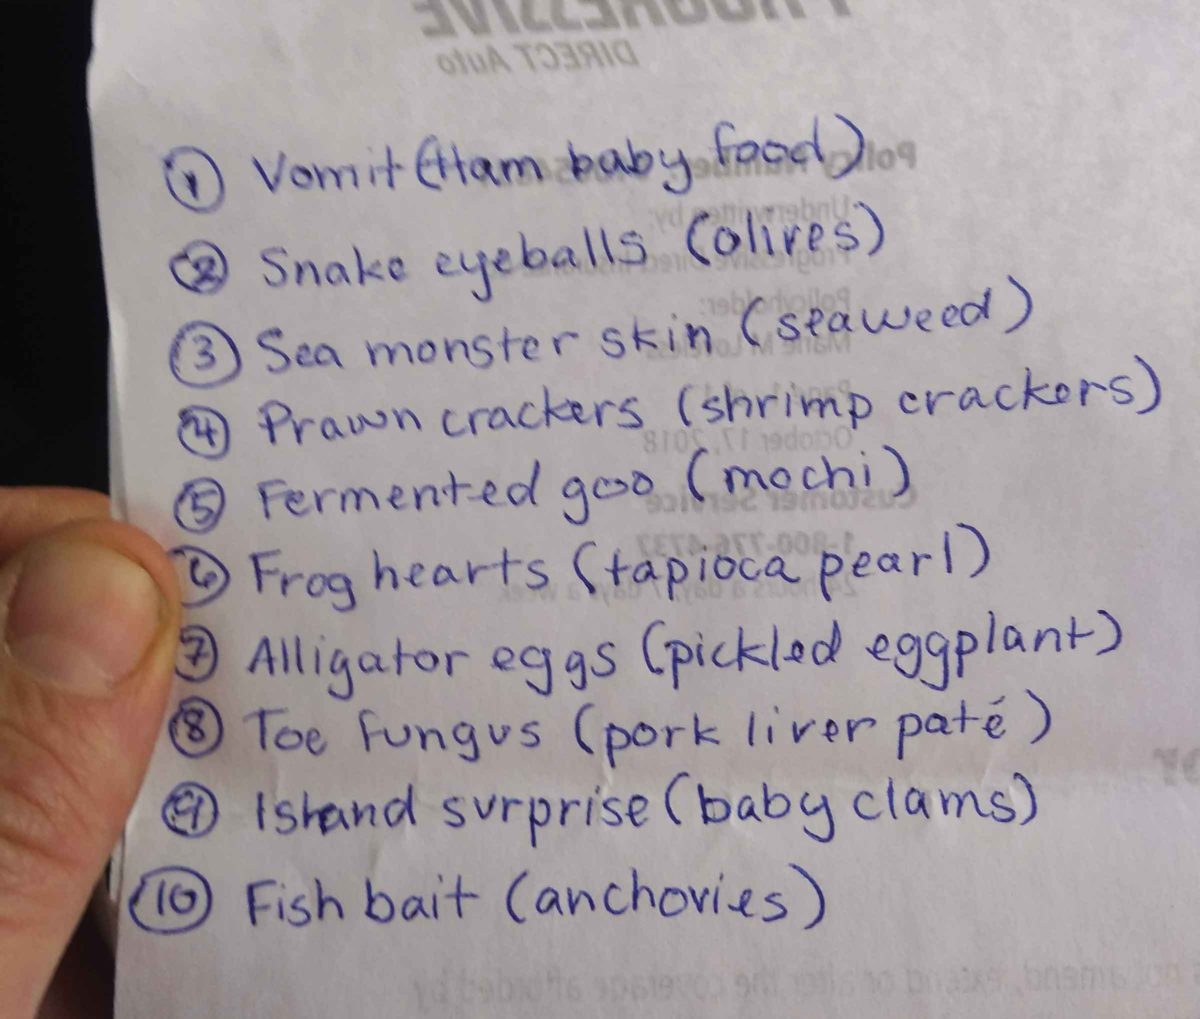 PROGRESSIVE
DIRECT Auto
① Vomit (Ham baby food)
② Snake eyeballs (olives)
③ Sea monster skin (seaweed)
④ Prawn crackers (shrimp crackers)
⑤ Fermented goo (mochi)
⑥ Frog hearts (tapioca pearl)
⑦ Alligator eggs (pickled eggplant)
⑧ Toe fungus (pork liver paté)
⑨ Island surprise (baby clams)
⑩ Fish bait (anchovies)